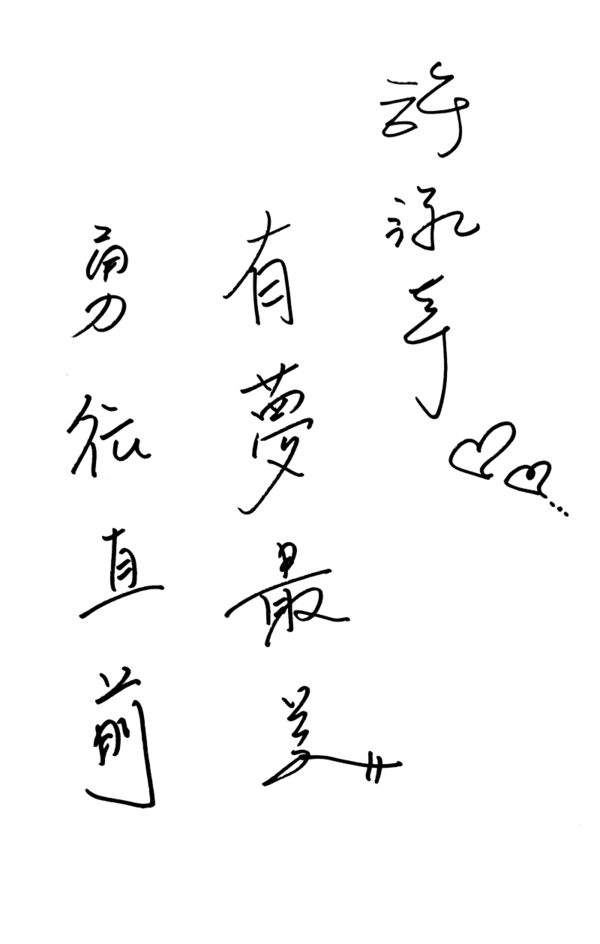 許詠幸
有夢最美
勇往直前